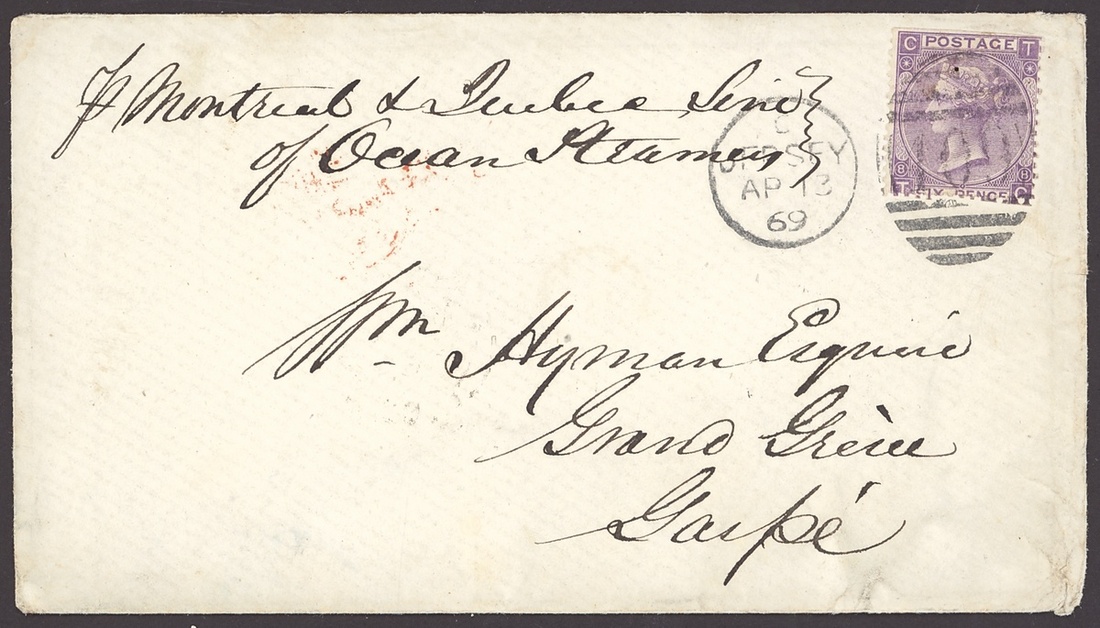 C POSTAGE T
p Montreal & Quebec Line
of Ocean Steamers
C
JERSEY
AP 13
69
8 8
T SIX PENCE C
Wm Hyman Esquire
Grand Grève
Gaspé